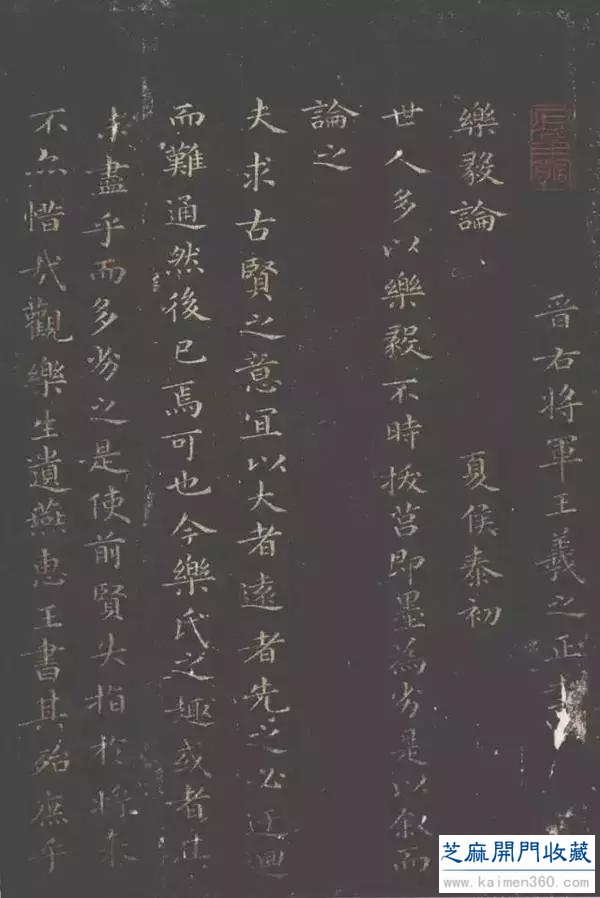 晋右将軍王羲之正書
樂毅論 夏侯泰初
世人多以樂毅不時拔莒即墨為劣是以叙而
論之
夫求古賢之意宜以大者遠者先之必迂迴
而難通然後已焉可也今樂氏之趣或者其
未盡乎而多劣之是使前賢失指於将来
不亦惜哉觀樂生遺燕惠王書其殆庶乎
芝麻開門收藏
www.kaimen360.com